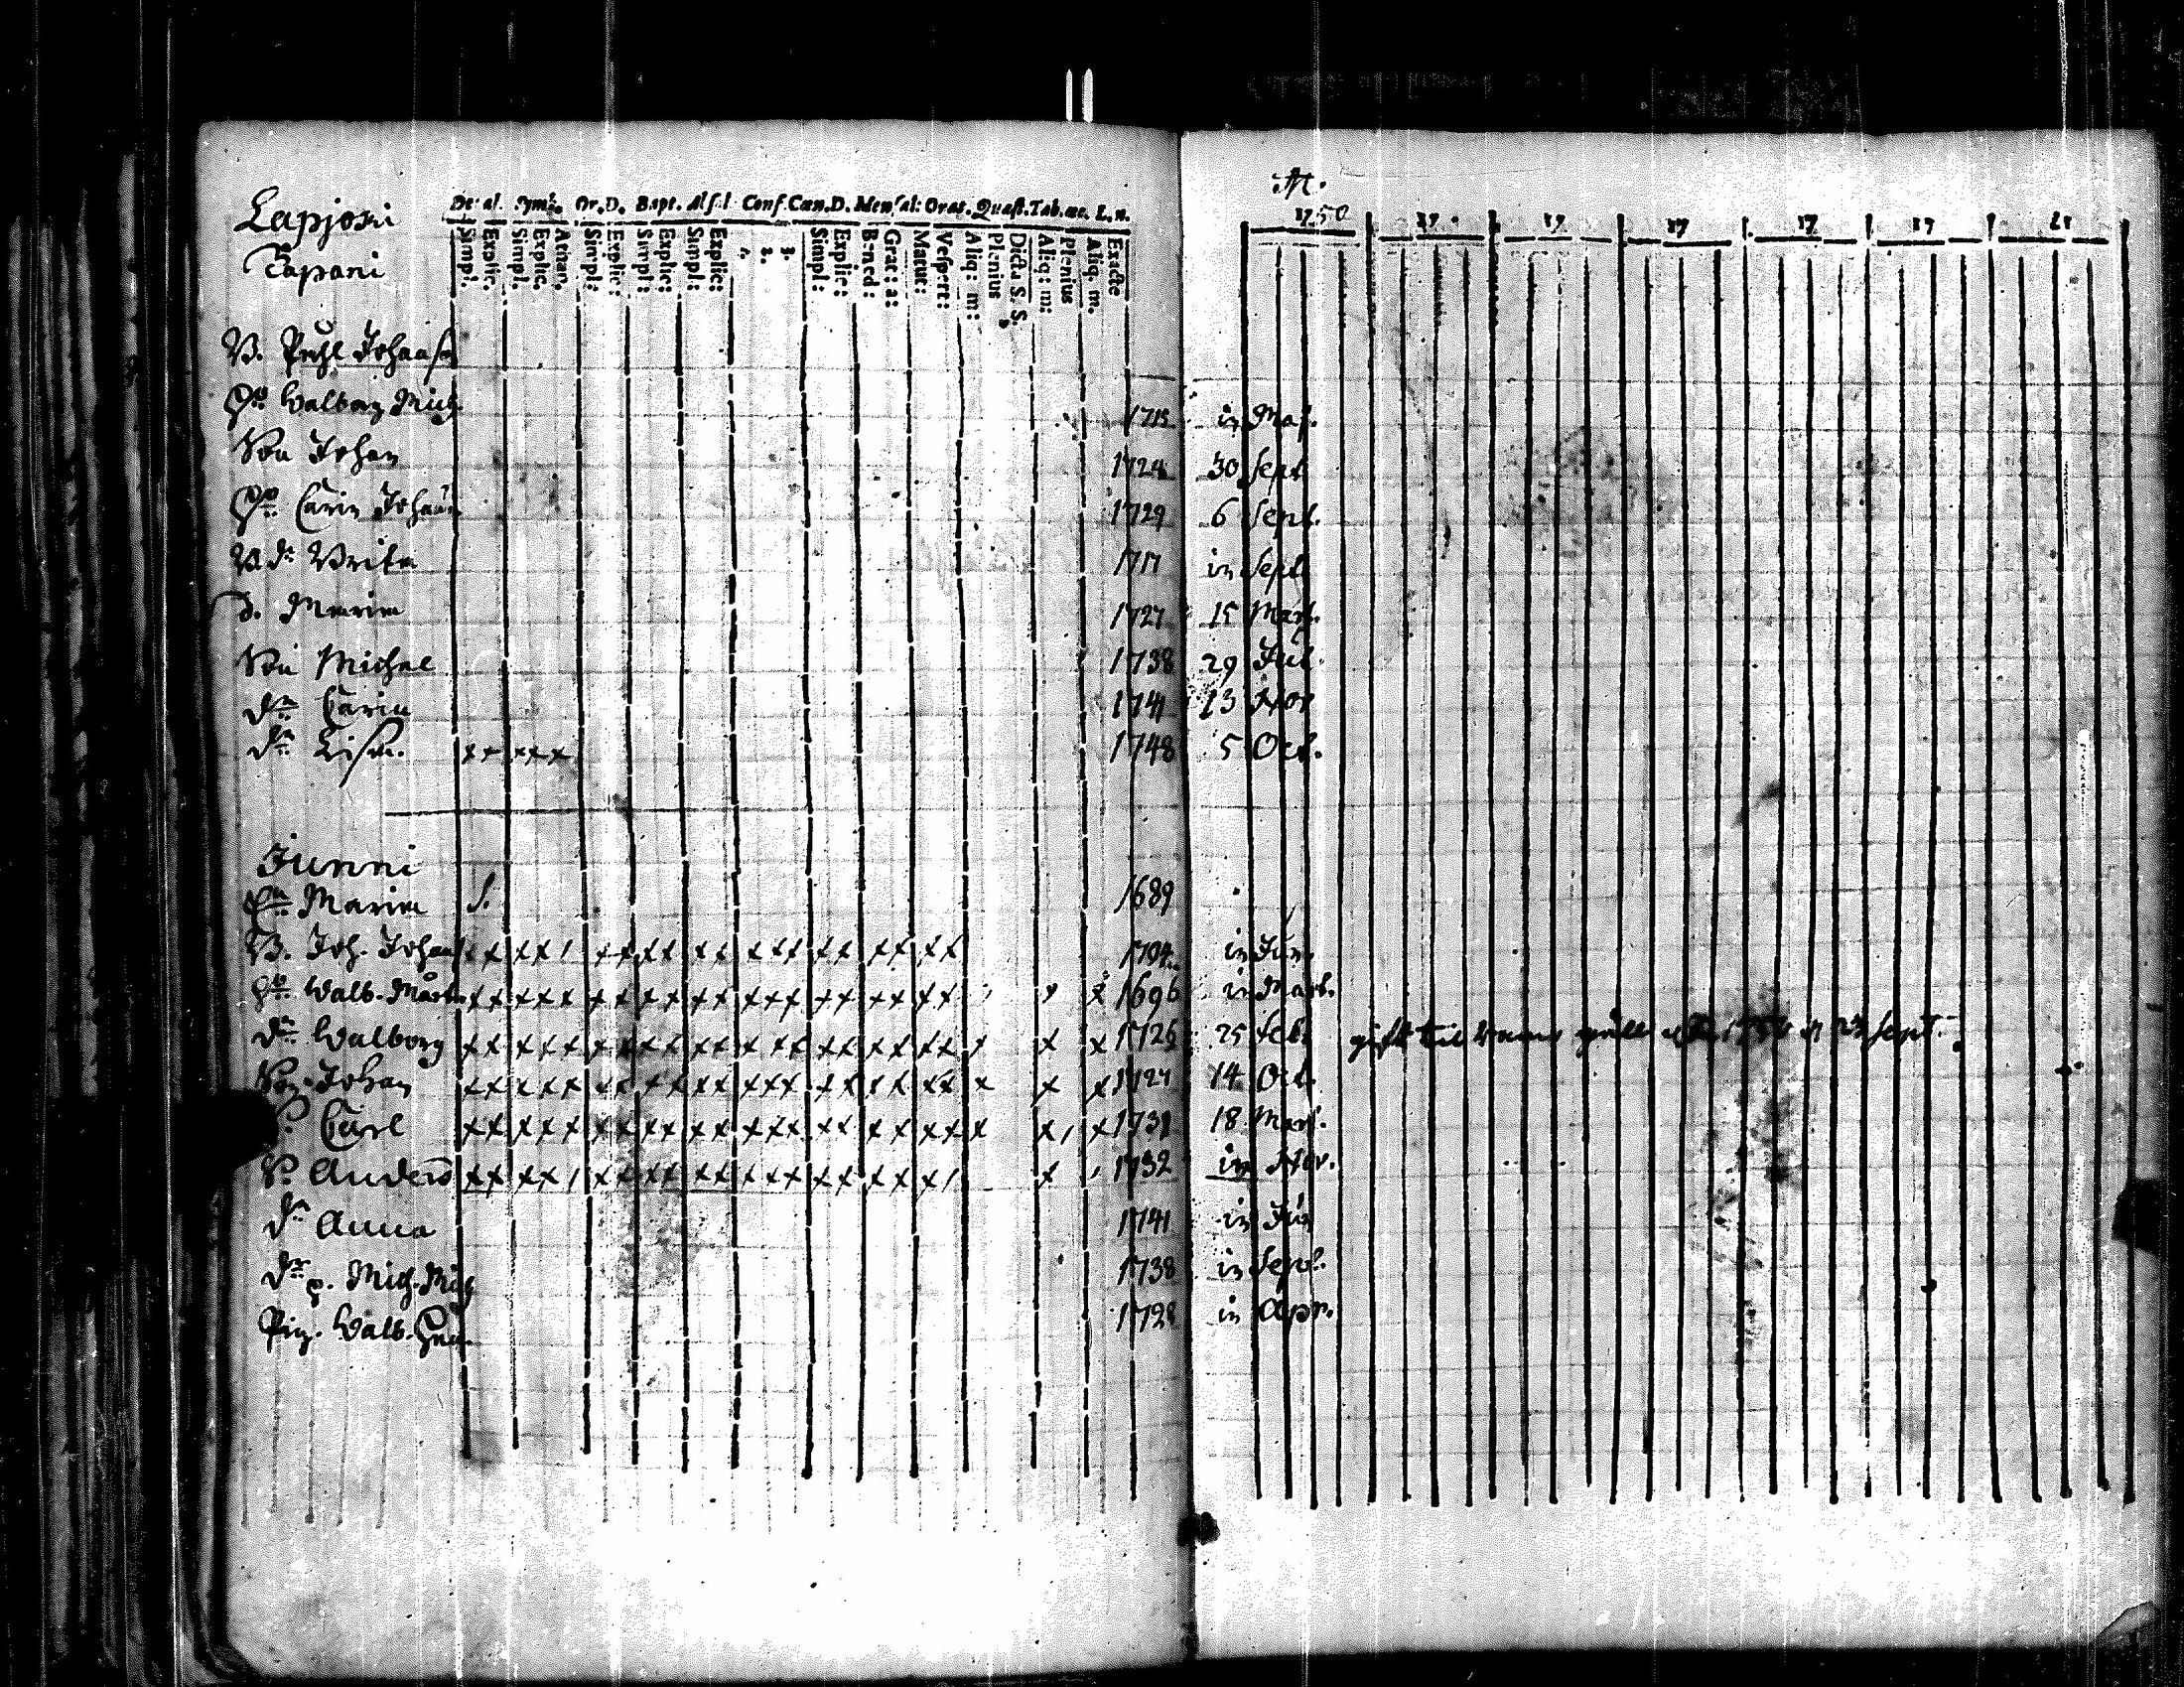 Lapjoki
Tapani
De al. Symb. Or. D. Bapt. Absol. Conf. Cœn. D. Mensal: Orat. Quæst. Tab. œc. L. n.
Simpl. Explic. Simpl. Explic. Athan. Simpl: Explic: Simpl: Explic: Simpl: Explic: 1. 2. 3. Simpl: Explic: Bened: Grat: a: Matut: Vespert: Aliq: m: Plenius Dicta S. S. Aliq: m: Plenius Aliq. m. Exacte
1750 17 17 17 17 17
Johanss
Walborg Mich 1715 in Maj.
Son Johan 1724 30 Sept
Carin Johan 1729 6 Sept.
Brita 1717 in Sept
d. Maria 1727 15 Mart.
Son Michel 1738 29 Jul.
dr Carin 1741 13 Nov
dr Lisa. xx xxx 1748 5 Oct.
Junni
Maria 1689
B. Joh. Johan xx xx / xx xx xx xxx xx xx xx in Jun.
Walb. Mårt. xx xxx xx xx xx xxx xx xx xx x x 1696 in Mart.
dr Walborg xx xxx xx xx xx xxx xx xx xx x x x 1726 25 Feb.
Son Johan xx xxx xx xx xx xxx xx xx xx x x x 1727 14 Oct.
S. Carl xx xxx xx xx xx xxx xx xx xx x x, x 18 Mart.
S. Anders xx xx / xx xx xx xxx xx xx x / x 1732 in Nov.
dr Anna 1741 in Jun
Mich. Mich 1738 in Sept.
Pig. Walb. 1728 in Apr.